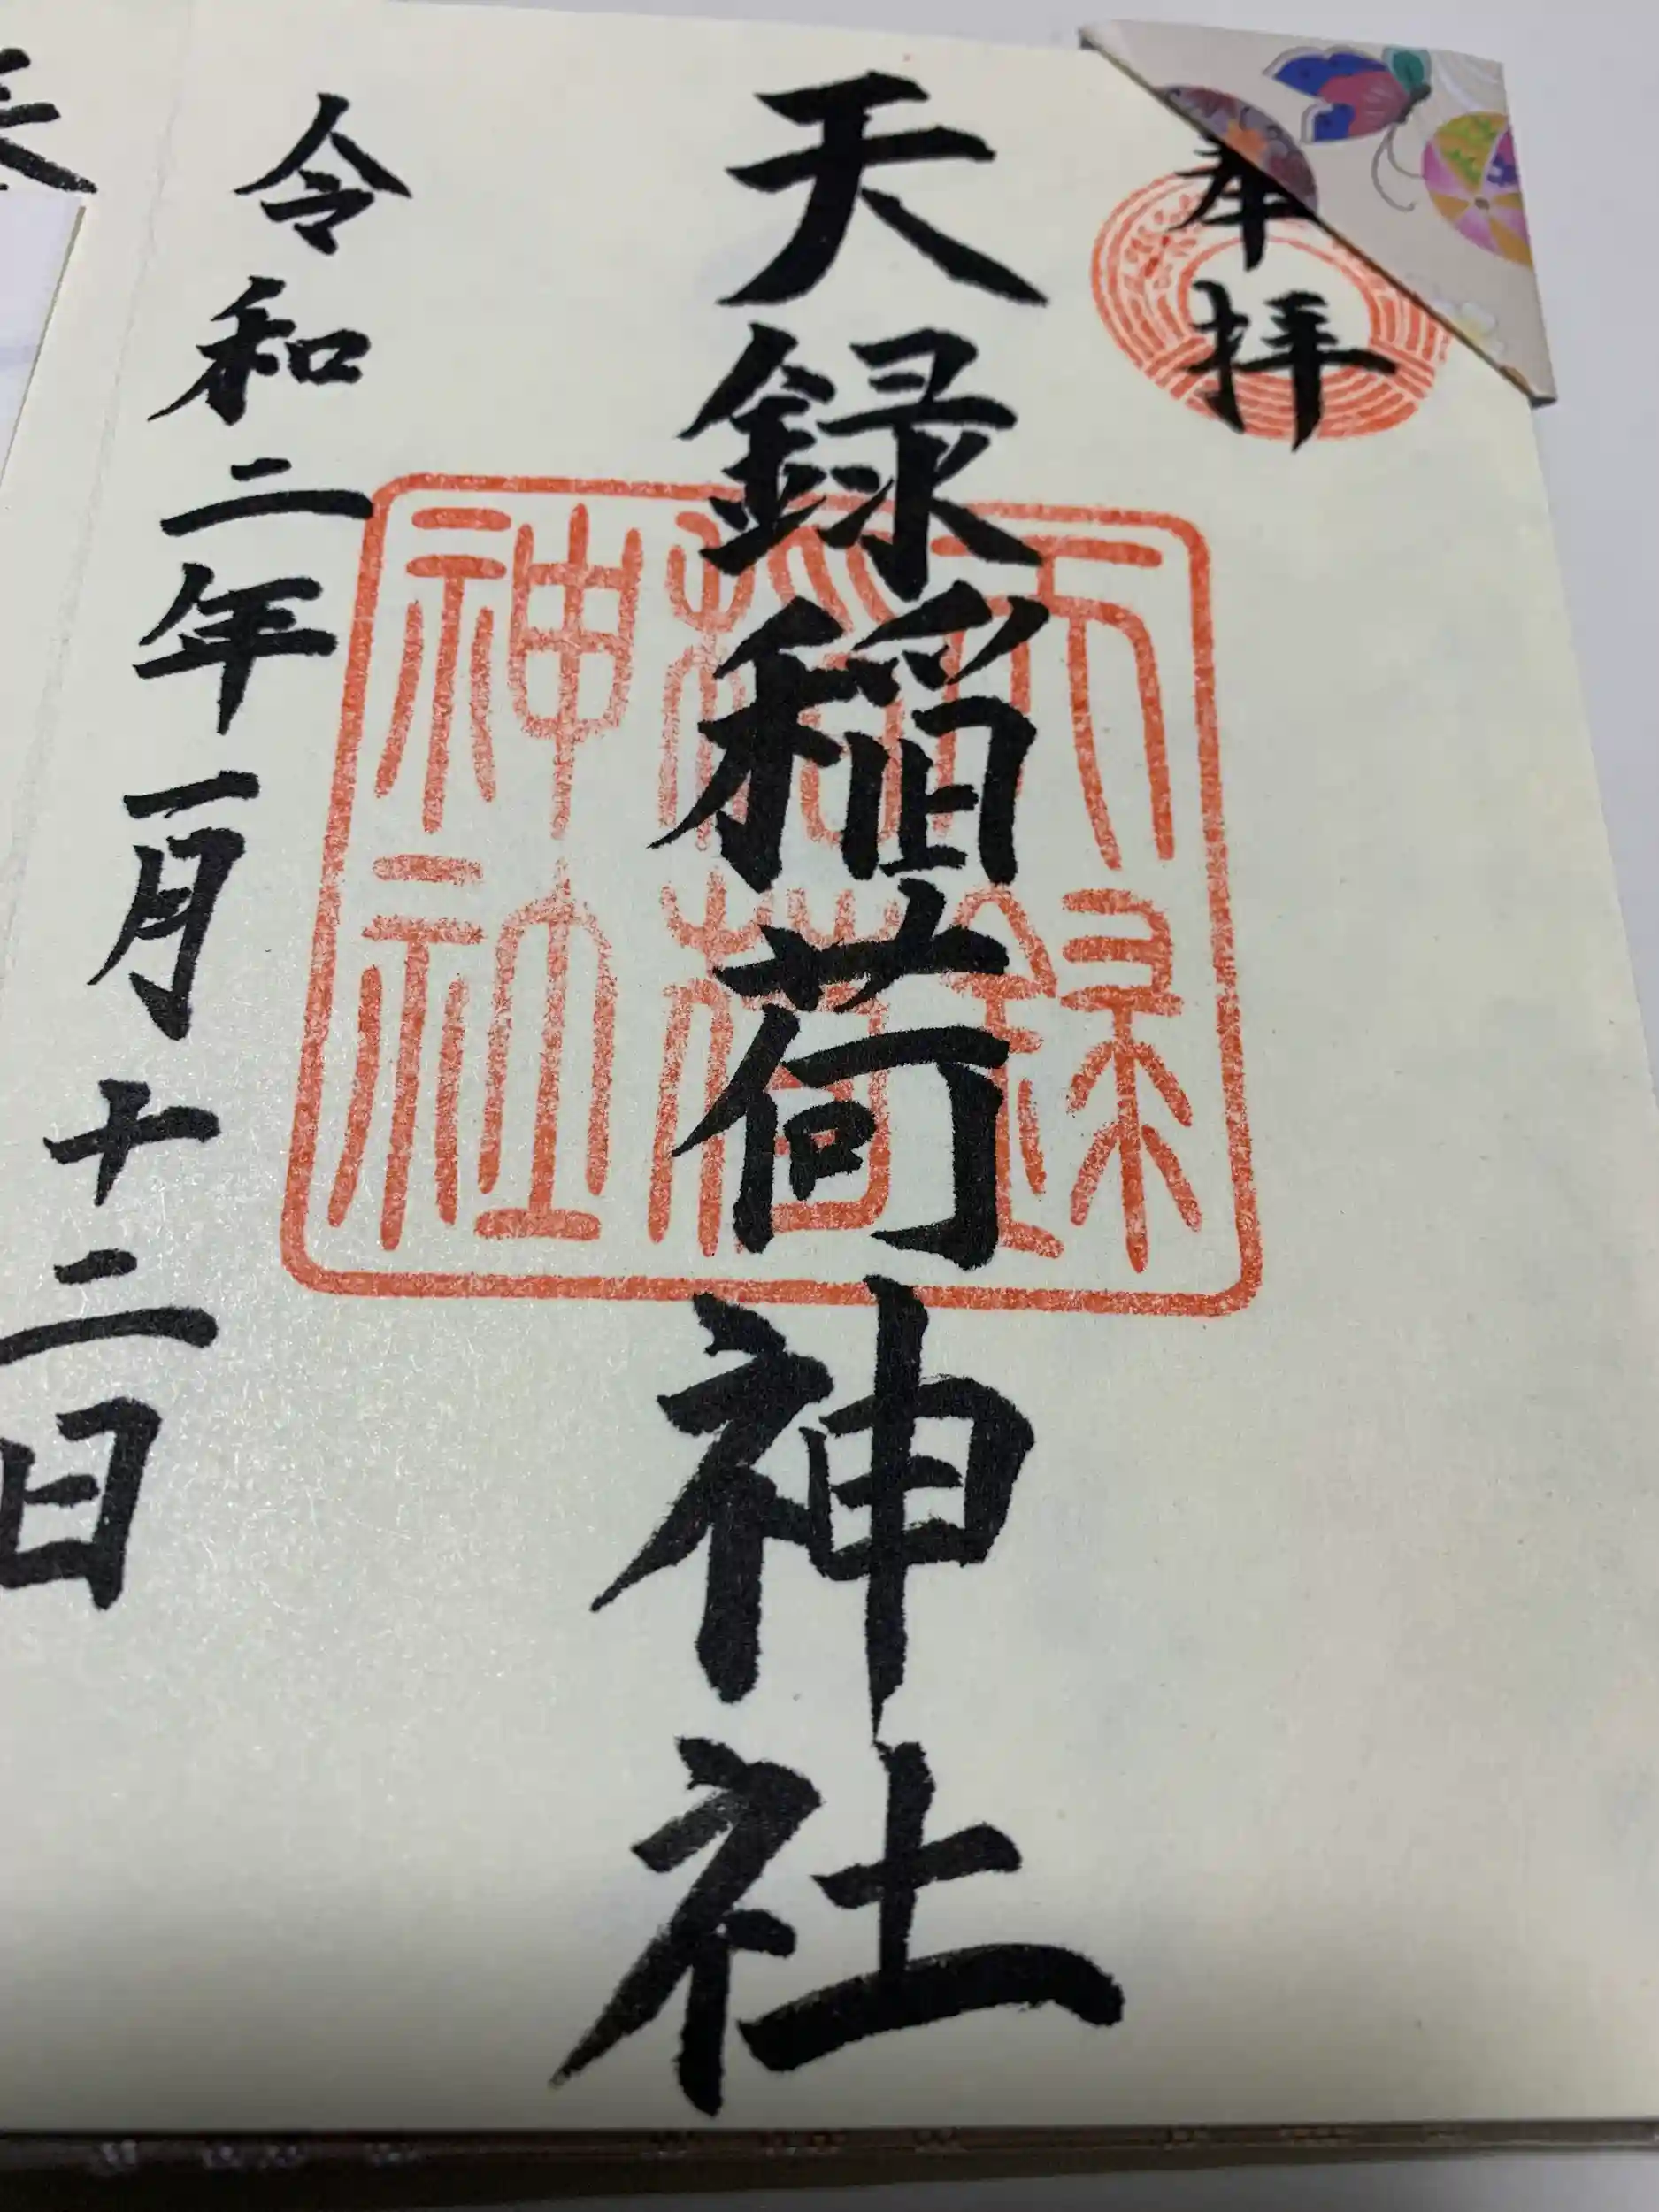 奉拝
天録稲荷神社
天録稲荷神社
令和二年一月十二日